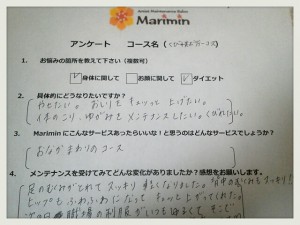 Marimin
アンケート　コース名（
1. お悩みの箇所を教えて下さい（複数可）
☑身体に関して　□お顔に関して　☑ダイエット
2. 具体的にどうなりたいですか？
やせたい。おしりをキュッと上げたい。
体のこり、ゆがみをメンテナンスしたい。
3. Mariminにこんなサービスあったらいいな！と思うのはどんなサービスでしょうか？
おなかまわりのコース
4. メンテナンスを受けてみてどんな変化がありましたか？感想をお願いします。
足のむくみがとれてスッキリ 軽くなりました。背中のむくみもスッキリ!!
ヒップもふわふわになって キュッと上がってくれた。
次の日 職場の制服が